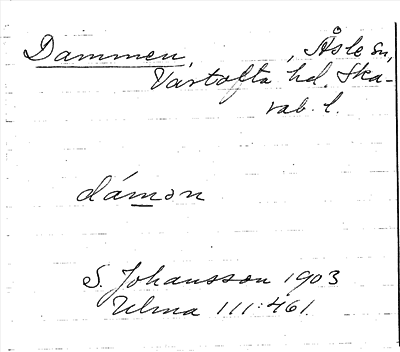 Dammen, , Åsle sn,
Vartofta hd. Ska-
rab. l.
dámən
S. Johansson 1903
Ulma 111:461.